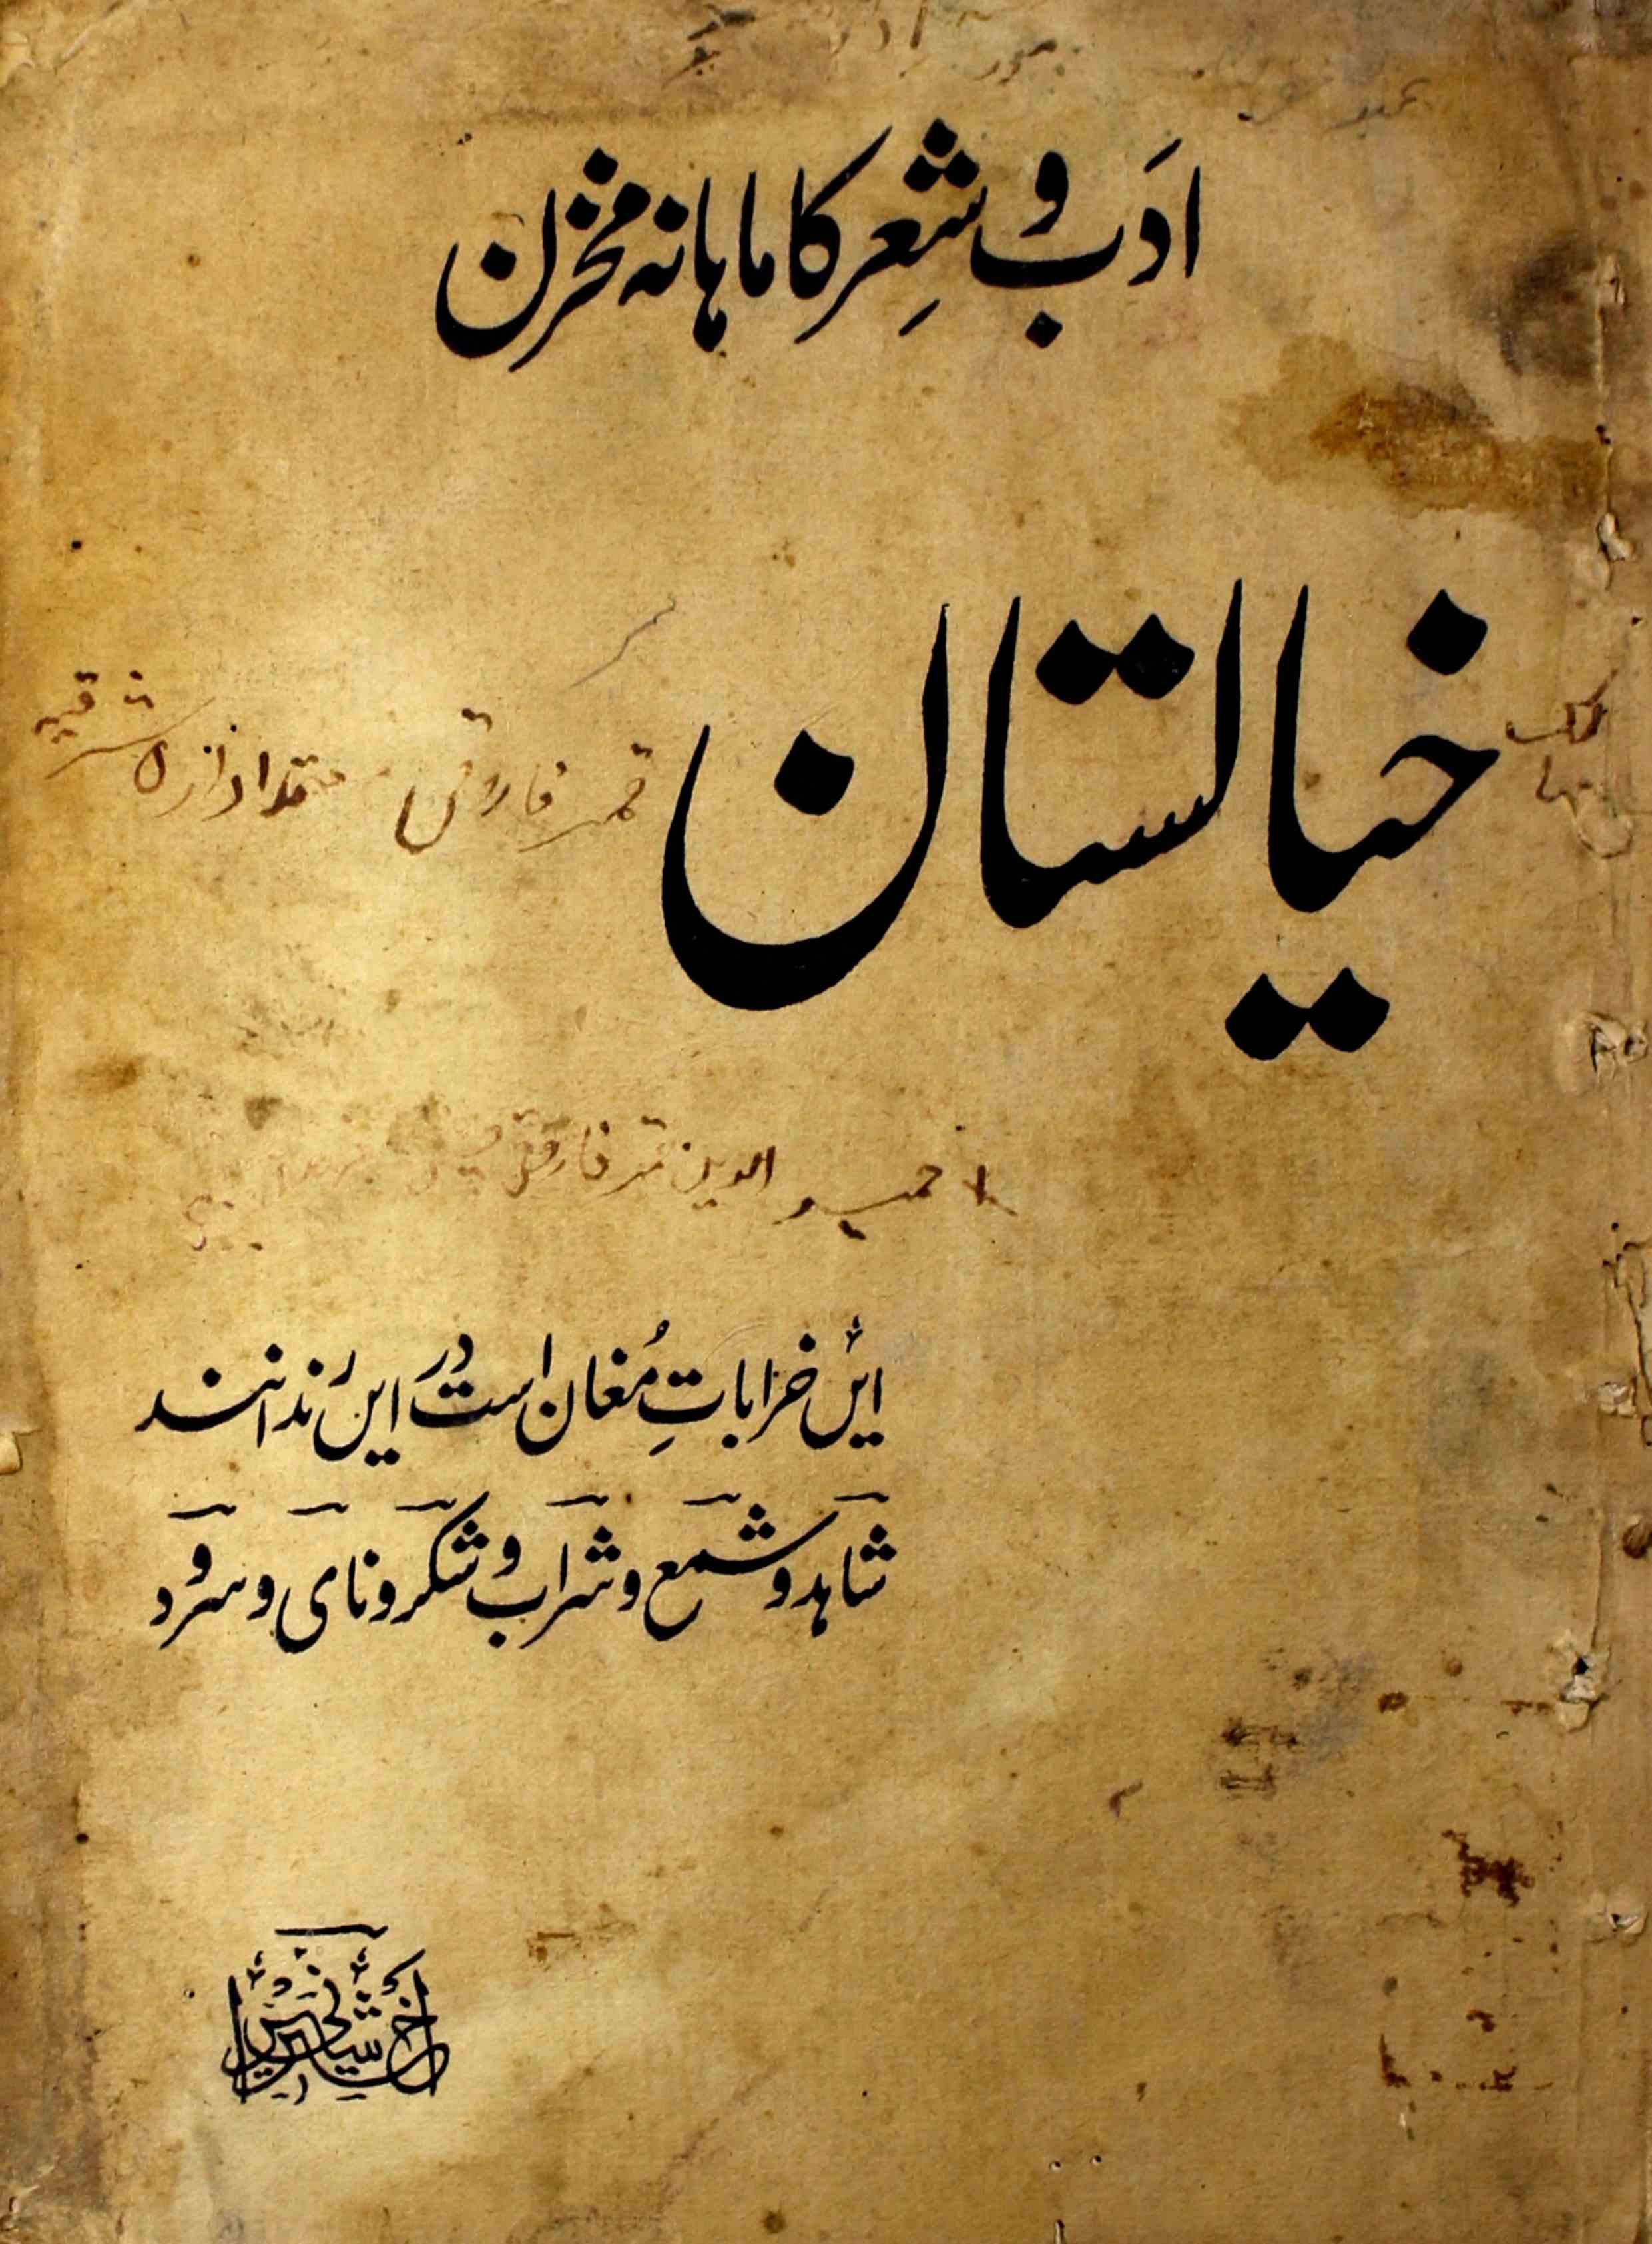 ادَب و شعِر کا ماہانہ مخزن
خیالستان
قمر فاروقی معتمد ادارۂ شرقیہ
حمید الدین قمر فاروقی
ایں خراباتِ مُغان است در این رندانند
شاہد و شمع و شراب و شکر و نای و سرود
اختر شیرانی